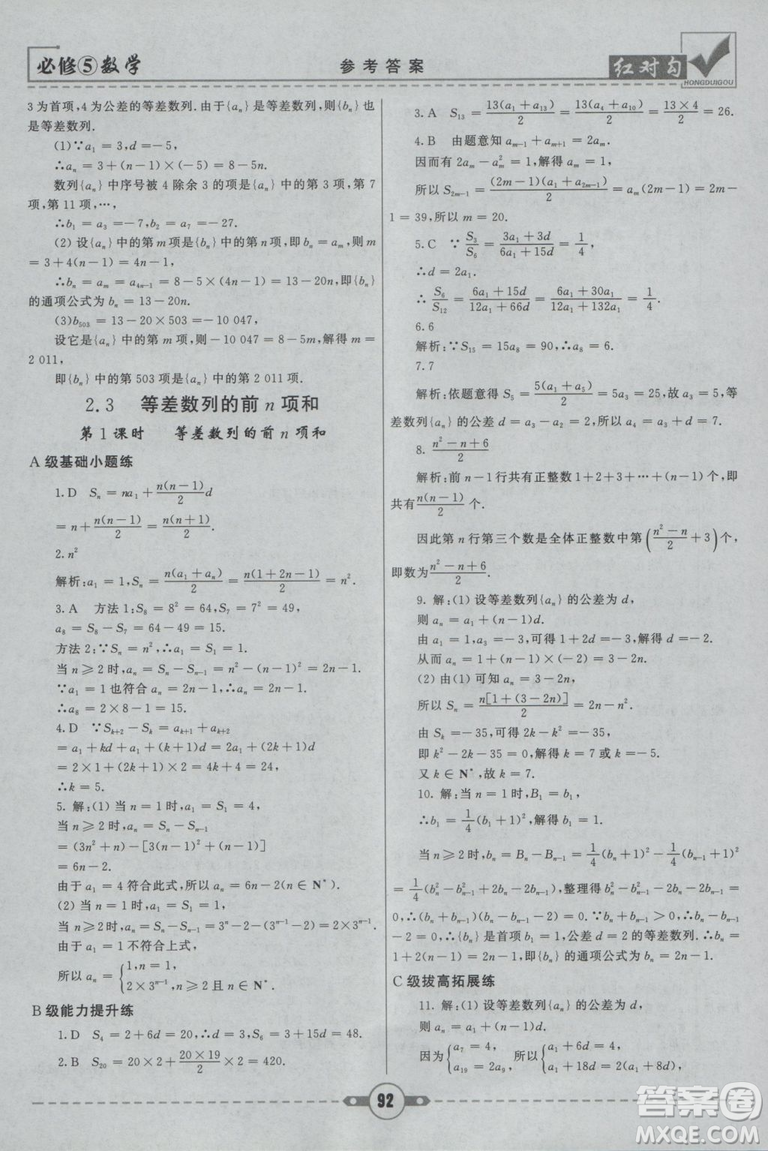 必修⑤数学
参考答案
红对勾
HONGDUIGOU
3为首项,4为公差的等差数列.由于{aₙ}是等差数列,则{bₙ}也
是等差数列.
(1)∵a₁=3,d=-5,
∴aₙ=3+(n-1)×(-5)=8-5n.
数列{aₙ}中序号被4除余3的项是{aₙ}中的第3项,第7
项,第11项,…,
∴b₁=a₃=-7,b₂=a₇=-27.
(2)设{aₙ}中的第m项是{bₙ}中的第n项,即bₙ=aₘ,则m
=3+4(n-1)=4n-1,
∴bₙ=aₘ=a₄ₙ₋₁=8-5×(4n-1)=13-20n,即{bₙ}
的通项公式为bₙ=13-20n.
(3)b₅₀₃=13-20×503=-10 047,
设它是{aₙ}中的第m项,则-10 047=8-5m,解得m=
2 011,
即{bₙ}中的第503项是{aₙ}中的第2 011项.
2.3 等差数列的前n项和
第1课时 等差数列的前n项和
A级基础小题练
1.D Sₙ=na₁+n(n-1)/2 d
=n+n(n-1)/2=n(n+1)/2.
2.n²
解析:a₁=1,Sₙ=n(a₁+aₙ)/2=n(1+2n-1)/2=n².
3.A 方法1:S₈=8²=64,S₇=7²=49,
a₈=S₈-S₇=64-49=15.
方法2:∵Sₙ=n²,∴a₁=S₁=1.
当n≥2时,aₙ=Sₙ-Sₙ₋₁=n²-(n-1)²=2n-1.
∵a₁=1也符合aₙ=2n-1,∴aₙ=2n-1.
∴a₈=2×8-1=15.
4.D ∵Sₖ₊₂-Sₖ=aₖ₊₁+aₖ₊₂
=a₁+kd+a₁+(k+1)d=2a₁+(2k+1)d
=2×1+(2k+1)×2=4k+4=24,
∴k=5.
5.解:(1)当n=1时,a₁=S₁=4,
当n≥2时,aₙ=Sₙ-Sₙ₋₁
=(3n²+n)-[3(n-1)²+(n-1)]
=6n-2.
由于a₁=4符合此式,所以aₙ=6n-2(n∈N*).
(2)当n=1时,a₁=S₁=1,
当n≥2时,aₙ=Sₙ-Sₙ₋₁=3ⁿ-2-(3ⁿ⁻¹-2)=2×3ⁿ⁻¹,
当n=1时,a₁不符合上式,
所以aₙ={1,n=1,
2×3ⁿ⁻¹,n≥2,n∈N*.
B级能力提升练
1.D S₄=2+6d=20,∴d=3,S₆=3+15d=48.
2.B S₂₀=20×2+20×19/2×2=420.
3.A S₁₃=13(a₁+a₁₃)/2=13(a₄+a₁₀)/2=13×4/2=26.
4.B 由题意知aₘ₋₁+aₘ₊₁=2aₘ.
因而有2aₘ-aₘ²=1,解得aₘ=1,
所以S₂ₘ₋₁=(2m-1)(a₁+a₂ₘ₋₁)/2=aₘ(2m-1)=2m-
1=39,所以m=20.
5.C ∵S₃/S₆=3a₁+3d/6a₁+15d=1/4,
∴d=2a₁.
∴S₆/S₁₂=6a₁+15d/12a₁+66d=36a₁/12a₁+132a₁=1/4.
6.6
解析:∵S₁₅=15a₈=90,∴a₈=6.
7.7
解析:依题意得S₅=5(a₁+a₅)/2=5a₃=15,a₃=3,等
差数列{aₙ}的公差d=2.所以a₅=a₃+2d=7.
8.n²-n+6/2
解析:前n-1行共有正整数1+2+3+…+(n-1)个,即
共有n(n-1)/2个.
因此第n行第三个数是全体正整数中第(n²-n/2+3)个,
即数为n²-n+6/2.
9.解:(1)设等差数列{aₙ}的公差为d,
则aₙ=a₁+(n-1)d.
由a₁=1,a₃=-3,可得1+2d=-3.解得d=-2.
从而aₙ=1+(n-1)×(-2)=3-2n.
(2)由(1)可知aₙ=3-2n,
所以Sₙ=n[1+(3-2n)]/2=2n-n².
由Sₖ=-35,可得2k-k²=-35,
即k²-2k-35=0,解得k=7或k=-5.
又k∈N*,故k=7.
10.解:当n=1时,B₁=b₁,
∴b₁=1/4(b₁+1)²,解得b₁=1.
当n≥2时,bₙ=Bₙ-Bₙ₋₁=1/4(bₙ+1)²-1/4(bₙ₋₁+1)²
=1/4(bₙ²-bₙ₋₁²+2bₙ-2bₙ₋₁),整理得bₙ²-bₙ₋₁²-2bₙ-2bₙ₋₁=
0,∴(bₙ+bₙ₋₁)(bₙ-bₙ₋₁-2)=0∵bₙ+bₙ₋₁>0,∴bₙ-bₙ₋₁
-2=0,∴{bₙ}是首项b₁=1,公差d=2的等差数列.∴bₙ=
2(n-1)+1=2n-1,∴{bₙ}的通项公式bₙ=2n-1.
C级拔高拓展练
11.解:(1)设等差数列{aₙ}的公差为d,
则aₙ=a₁+(n-1)d.
因为{a₇=4, a₁₉=2a₉,所以{a₁+6d=4, a₁+18d=2(a₁+8d),
92
答案圈
MXQE.COM